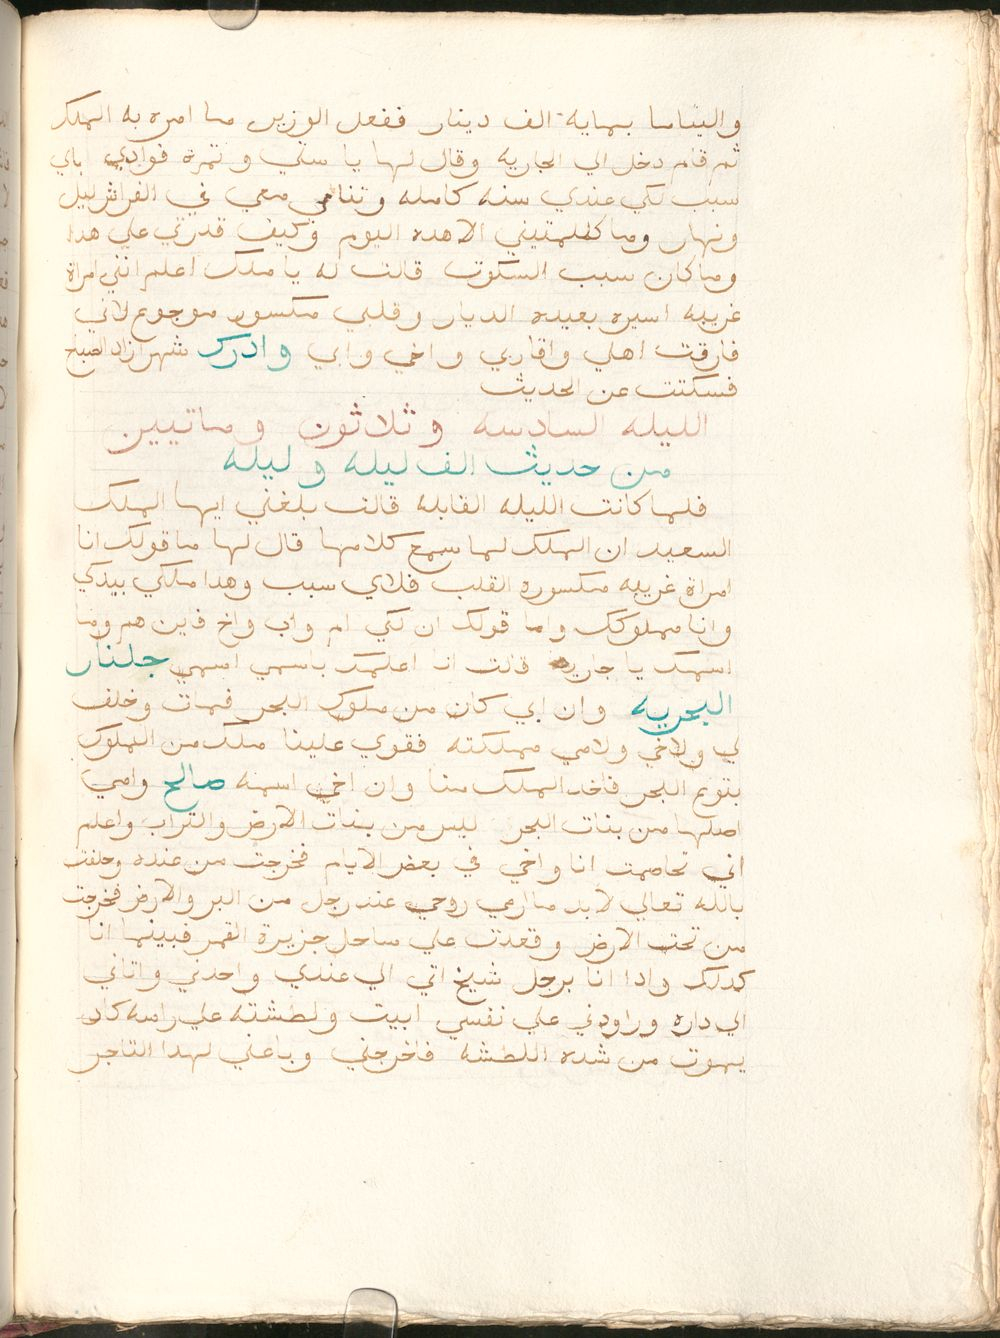 واليتاما بمايه الف دينار ففعل الوزير ما امره به الملك
ثم قام دخل الي الجاريه وقال لها يا ستي و ثمرة فوادي باي
سبب لكي عندي سنه كامله و تنامي معي في الفراش ليل
ونهار وما كلمتيني الا هده اليوم وكيف قدرتي علي هدا
وما كان سبب السكوت قالت له يا ملك اعلم انني امراة
غريبه اسيره بعيده الديار وقلبي مكسور موجوع لاني
فارقت اهلي واقاربي واخي وابي وادرك شهرازاد الصباح
فسكتت عن الحديث
الليله السادسه وثلاثون وماتيين
من حديث الف ليله وليله
فلما كانت الليله القابله قالت بلغني ايها الملك
السعيد ان الملك لما سمع كلامها قال لها ما قولك انا
امراة غريبه مكسوره القلب فلاي سبب وهدا ملكي بيدكي
وانا مملوكك واما قولك ان لكي ام واب واخ فاين هم وما
اسمك يا جاريه قالت انا اعلمك باسمي اسمي جلنار
البحريه وان ابي كان من ملوك البحر فمات وخلف
لي ولاخي ولامي مملكته فقوي علينا ملك من الملوك
بتوع البحر فاخد الملك منا وان اخي اسمه صالح وامي
اصلها من بنات البحر ليس من بنات الارض والتراب واعلم
اني تخاصمت انا واخي في بعض الايام فخرجت من عنده وحلفت
بالله تعالي لابد ما ارمي روحي عند رجل من البر والارض فخرجت
من تحت الارض وقعدت علي ساحل جزيرة القمر فبينما انا
كدلك وادا انا برجل شيخ اتي الي عندي واخدني واتاني
الي داره وراودني علي نفسي ابيت ولطشته علي راسه كان
يموت من شده اللطشه فاخرجني وباعني لهدا التاجر